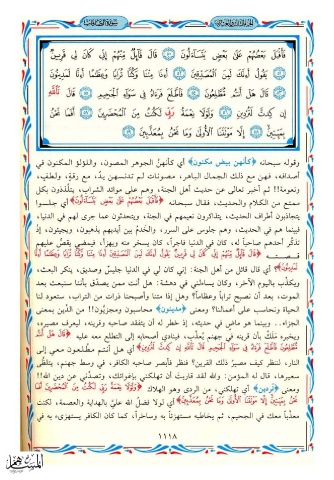 فَأَقْبَلَ بَعْضُهُمْ عَلَىٰ بَعْضٍ يَتَسَاءَلُونَ ۝٥٠ قَالَ قَائِلٌ مِّنْهُمْ إِنِّي كَانَ لِي قَرِينٌ
۝٥١ يَقُولُ أَءِنَّكَ لَمِنَ الْمُصَدِّقِينَ ۝٥٢ أَءِذَا مِتْنَا وَكُنَّا تُرَابًا وَعِظَامًا أَءِنَّا لَمَدِينُونَ
۝٥٣ قَالَ هَلْ أَنتُم مُّطَّلِعُونَ ۝٥٤ فَاطَّلَعَ فَرَآهُ فِي سَوَاءِ الْجَحِيمِ ۝٥٥ قَالَ تَاللَّهِ
إِن كِدتَّ لَتُرْدِينِ ۝٥٦ وَلَوْلَا نِعْمَةُ رَبِّي لَكُنتُ مِنَ الْمُحْضَرِينَ ۝٥٧ أَفَمَا نَحْنُ
بِمَيِّتِينَ ۝٥٨ إِلَّا مَوْتَتَنَا الْأُولَىٰ وَمَا نَحْنُ بِمُعَذَّبِينَ ۝٥٩
وقوله سبحانه ﴿كَأَنَّهُنَّ بَيْضٌ مَكْنُون﴾ أي كأنهنَّ الجوهر المصون، واللؤلؤ المكنون في
أصدافه، فهن مع ذلك الجمال الباهر، مصونات لم تدنسهن يدٌ، مع رقةٍ، ولطفٍ،
ونعومة!! ثم أخبر تعالى عن حديث أهل الجنة، وهم على موائد الشراب، يتلذذون بكل
ممتع من الكلام والحديث، فقال سبحانه ﴿فَأَقْبَلَ بَعْضُهُمْ عَلَىٰ بَعْضٍ يَتَسَاءَلُونَ﴾ أي جلسوا
يتجاذبون أطراف الحديث، يتذاكرون نعيمهم في الجنة، ويتحدثون عما جرى لهم في الدنيا،
فبينما هم في الحديث، وهم جلوس على السرر، والخدمُ بين أيديهم يذهبون، ويجيئون، إذْ
تذكَّر أحدهم صاحباً له، كان في الدنيا فاجراً، كان يسخر منه ويهزأ، فيمضي يقصُّ عليهم
قصته ﴿قَالَ قَائِلٌ مِّنْهُمْ إِنِّي كَانَ لِي قَرِينٌ يَقُولُ أَءِنَّكَ لَمِنَ الْمُصَدِّقِينَ أَءِذَا مِتْنَا وَكُنَّا تُرَابًا وَعِظَامًا أَءِنَّا
لَمَدِينُونَ﴾؟ أي قال قائل من أهل الجنة: إني كان لي في الدنيا جليسٌ وصديق، ينكر البعث،
ويكذِّب باليوم الآخر، وكان يسألني في دهشة: هل أنت ممن يصدِّق بأننا سنبعث بعد
الموت، بعد أن نصبح تراباً وعظاماً؟ وهل إذا متنا وأصبحنا ذرات من التراب، ستعود لنا
الحياة ونحاسب على أعمالنا؟ ومعنى ﴿مدينون﴾ محاسبون ومجزيُّون!! من الدَّين بمعنى
الجزاء.. وبينما هو ماضٍ في حديثه، إذ خطر له أن يتفقد صاحبه وقرينه، ليعرف مصيره،
ويخبره ملَكٌ بأن قرينه في جهنم يُعذَّب، فينادي أصحابه إلى التطلع معه عليه ﴿قَالَ هَلْ أَنتُم
مُّطَّلِعُونَ فَاطَّلَعَ فَرَآهُ فِي سَوَاءِ الْجَحِيمِ قَالَ تَاللَّهِ إِن كِدتَّ لَتُرْدِينِ﴾ أي هل أنتم مطَّلعون معي إلى
النار، لننظر كيف مصيرُ ذلك القرين؟ فنظر فأبصر صاحبه الكافر، في وسط جهنم، يتلظَّى
سعيرها، قال له المؤمن: والله لقد قاربتَ أن تهلكني بإغوائك، وتصدُّني عن دين الله!!
ومعنى ﴿تردين﴾ أي تهلكني، من الردى وهو الهلاك ﴿وَلَوْلَا نِعْمَةُ رَبِّي لَكُنتُ مِنَ الْمُحْضَرِينَ أَفَمَا
نَحْنُ بِمَيِّتِينَ إِلَّا مَوْتَتَنَا الْأُولَىٰ وَمَا نَحْنُ بِمُعَذَّبِينَ﴾ أي لولا فضلُ الله عليَّ بالهداية والعصمة، لكنت
معذَّباً معك في الجحيم، ثم يخاطبه مستهزئاً به وساخراً، كما كان الكافر يستهزىء به في
١١١٨